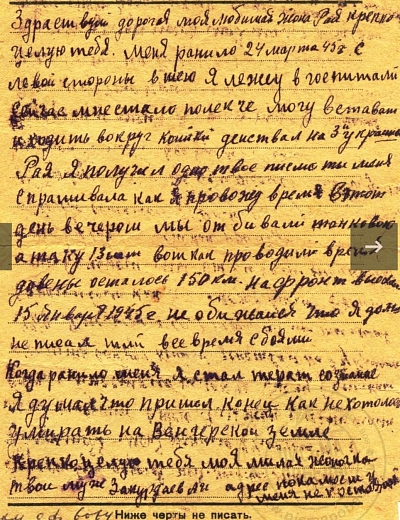 Здраствуй дорогая моя любимая жена Рая крепко
целую тебя. меня ранило 24 марта 45г с
левой стороны в шею Я лежу в госпитали
сейчас мне стало полекче могу встават
и ходить вокруг койки действал на 3й украин
Рая Я получил одно твое писмо ты меня
спрашивала как я провожу время В этот
день вечером мы отбивали танковою
атаку 13 шт вот как проводили время
до вены осталось 150 км. на фронт
15 января 1945г не обижайся что я
не писал шли все время с боями
Когда ранило меня я стал терат сознание
Я думал что пришол конец как не хотола
умирать на Венгерской земле
крепко целую тебя моя милая женочка
твой муж адрес пока
меня не
Ниже черты не писать.